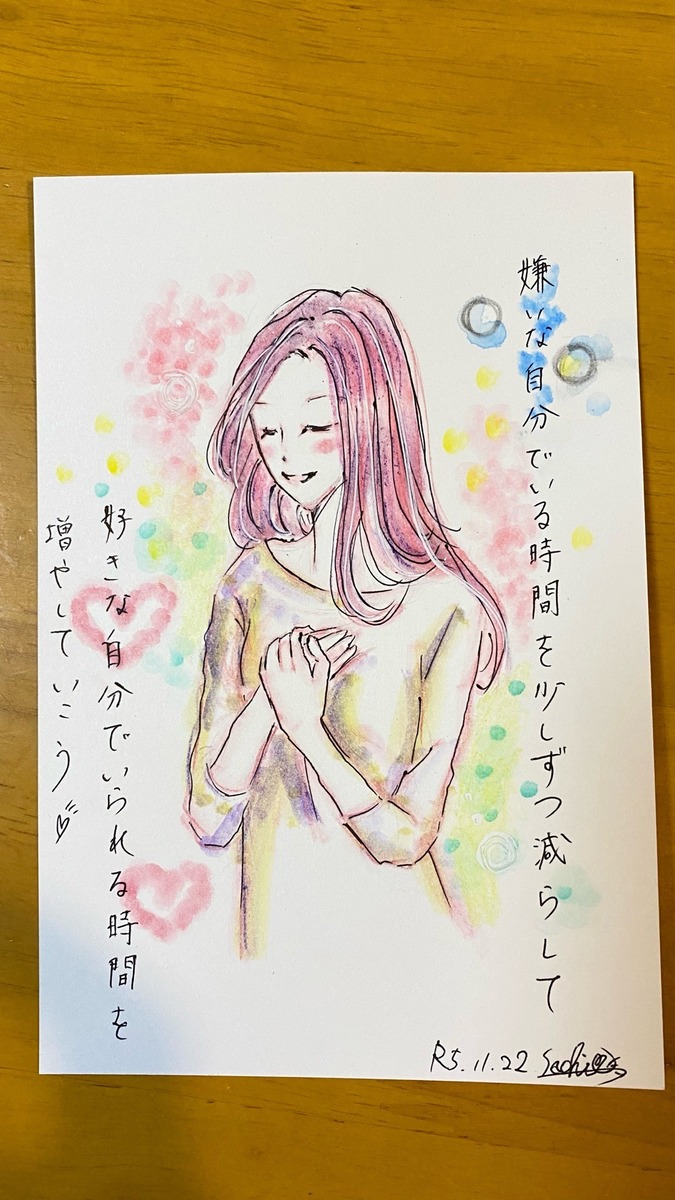 嫌いな自分でいる時間を少しずつ減らして
好きな自分でいられる時間を
増やしていこう
R5.11.22 Sachi